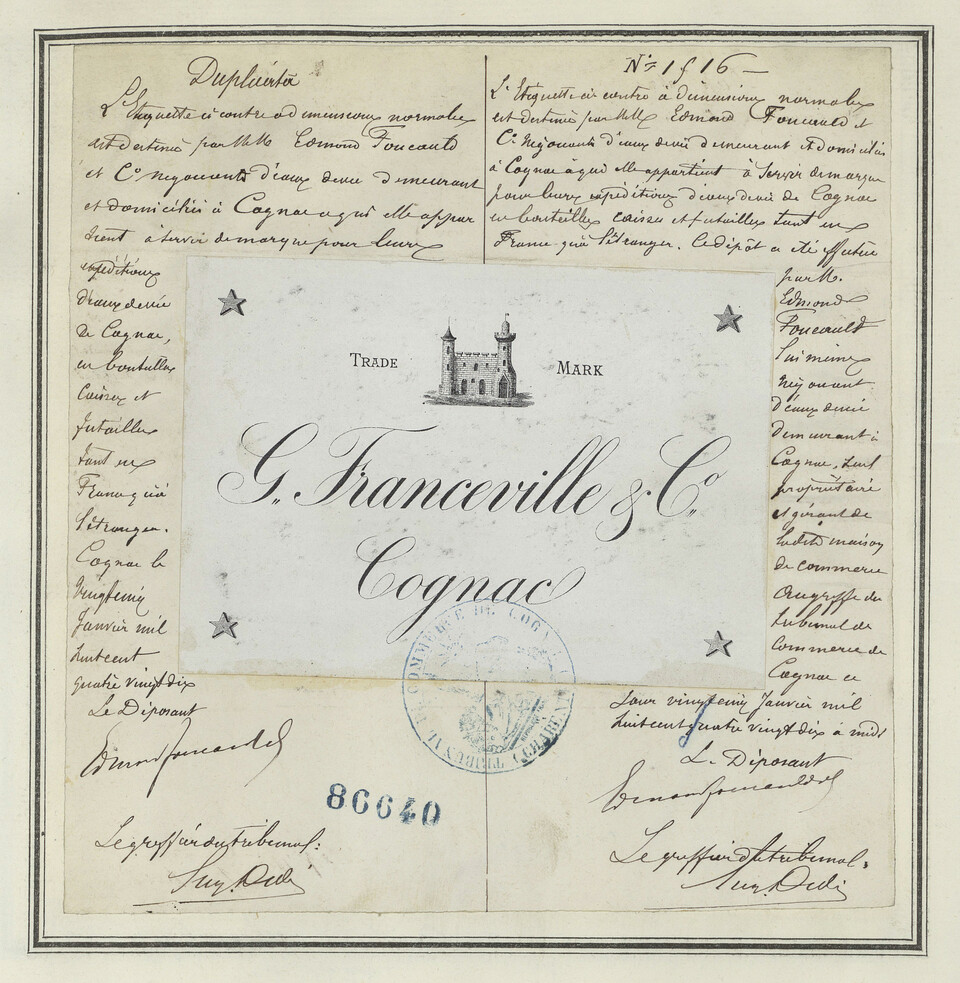 Duplicata
L'Etiquette ci contre a dimensions normales
est destinée par MM. Edmond Foucauld
et Cº négociants d'eaux de vie demeurant
et domiciliés à Cognac a qui elle appar
tient à servir de marque pour leurs
expéditions
d'eaux de vie
de Cognac,
en bouteilles
Caisses et
futailles
tant en
France qu'à
l'étranger.
Cognac le
Vingt
Janvier mil
huit cent
quatre vingt dix
Le Déposant
Le greffier du tribunal:
Nº 1516
L'Etiquette ci contre à dimensions normales
est destinée par MM. Edmond Foucauld et
Cº Négociants d'eaux de vie demeurant et domiciliés
à Cognac à qui elle appartient à servir de marque
pour leurs expéditions d'eaux de vie de Cognac
en bouteilles caisses et futailles tant en
France qu'à l'étranger. Ce dépôt a été effectué
par M.
Edmond
Foucauld
lui même
Négociant
d'eaux de vie
demeurant à
Cognac, seul
propriétaire
et gérant de
ladite maison
de commerce
au greffe du
tribunal de
commerce de
Cognac ce
jour vingt Janvier mil
huit cent quatre vingt dix à midi
Le Déposant
Le greffier du tribunal:
TRADE MARK
G. Franceville & Cº
Cognac
TRIBUNAL DE COMMERCE DE COGNAC (CHARENTE)
86640